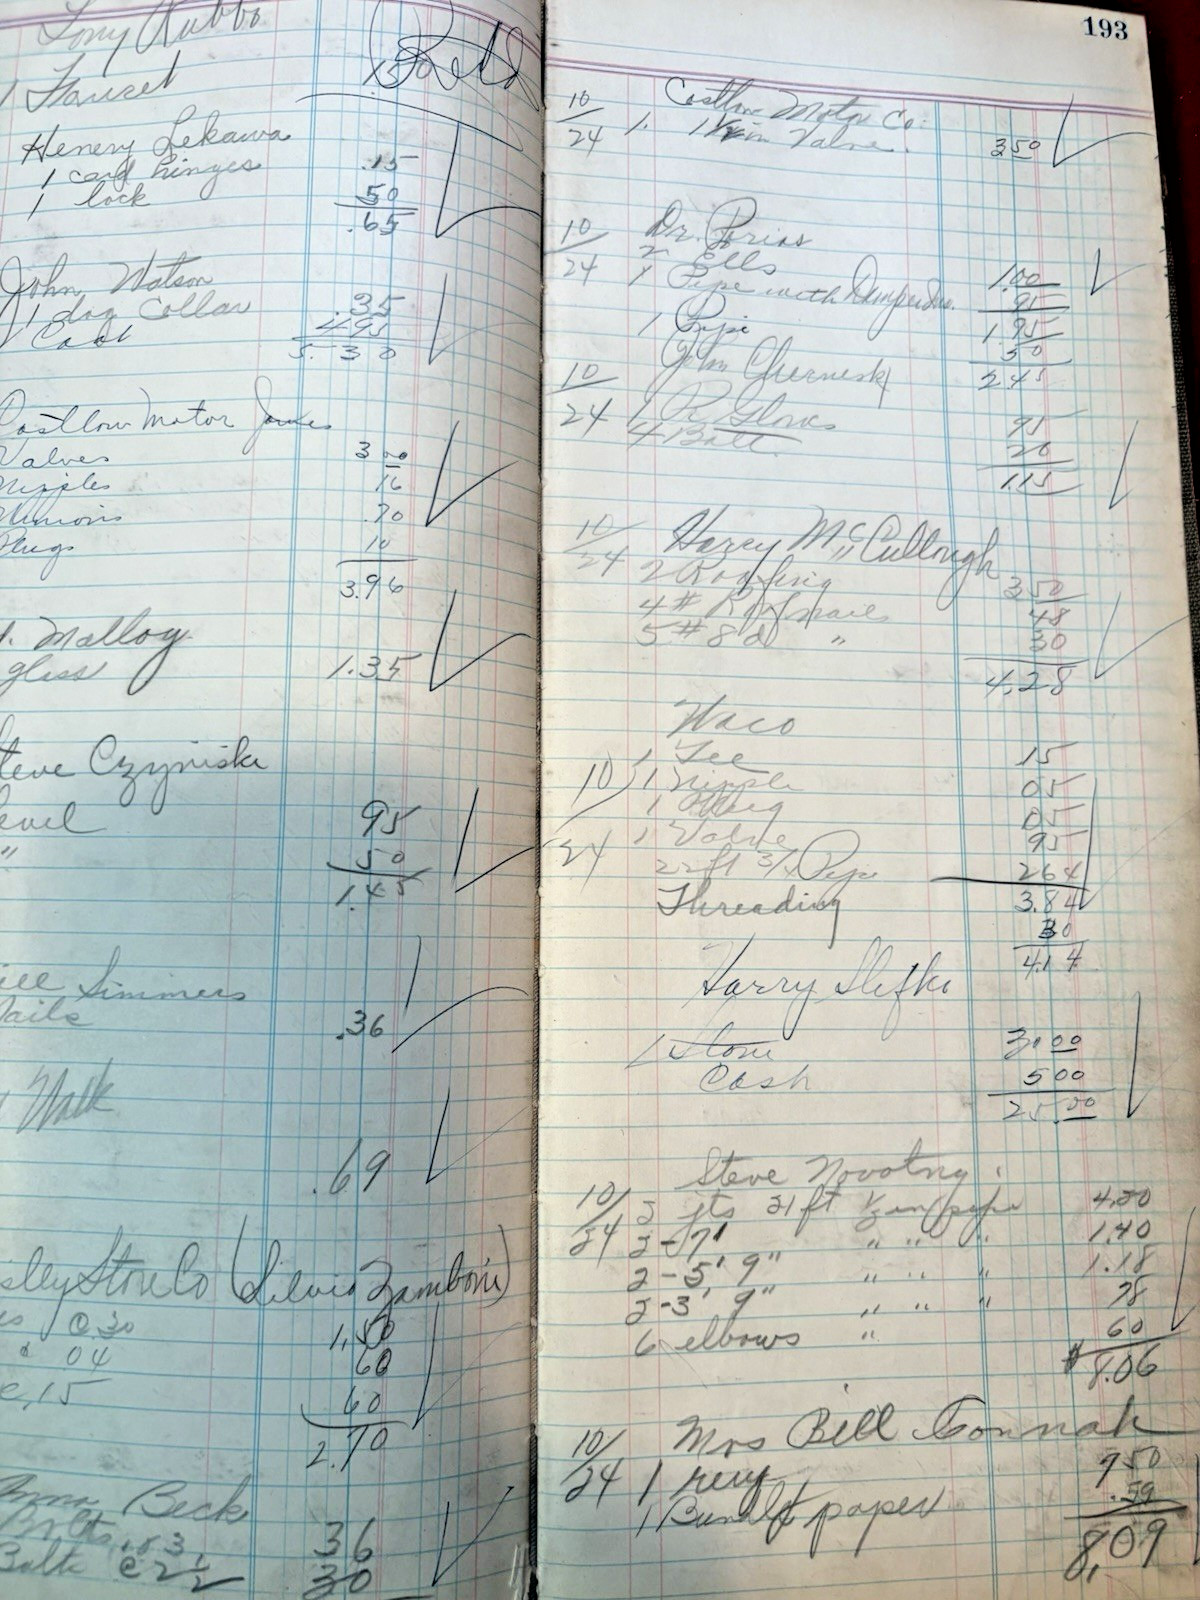 Tony Rubbo
1 Faucet 1.50 Pd
Henery Lekawa
1 card hinges .15
1 lock 50
.65
John Watson
1 dog Collar .35
4.95
5.30
Costlow Motor
Valves 3 00
Nipples 16
Unions .70
Plugs 10
3.96
Malloy
glass 1.35
teve Czyniske
evel 95
" 50
1.45
ill Simmers
Nails .36
Walk
.69
sley Store Co (Silvio Zamboni)
@ 30 1.50
04 60
15 60
2.70
Beck
Bolts 3 36
Bolts @ 2 1/2 30
193
10/24 Costlow Motor Co.
1 in Valve. 3 50
10/24 Dr.
2 Ells 1.00
1 Pipe with 95
1.95
1 Pipe 50
2 45
10/24 John Cherniesk
1 Pr Gloves 95
4 Bolts 20
1.15
10/24 Harry McCullough
2 Roofing 3 50
4# Roof nails 48
5# 8 d " 30
4.28
Waco
10/24
1 Tee 15
1 Nipple 05
1 Plug 05
1 Valve 95
22 ft 3/4 Pipe 2 64
3.84
Threading 30
4.14
Harry Slefko
1 Stove
Cash 5 00
25.00
Steve Novotny
10/24 2 jts 21 ft 1/2 in pipe 4.20
2-7' " " " 1.40
2-5' 9" " " " 1.18
2-3' 9" " " " 78
6 elbows " 60
$8.06
10/24 Mrs Bill Connah
1 7 50
1 Bundle paper .59
8.09